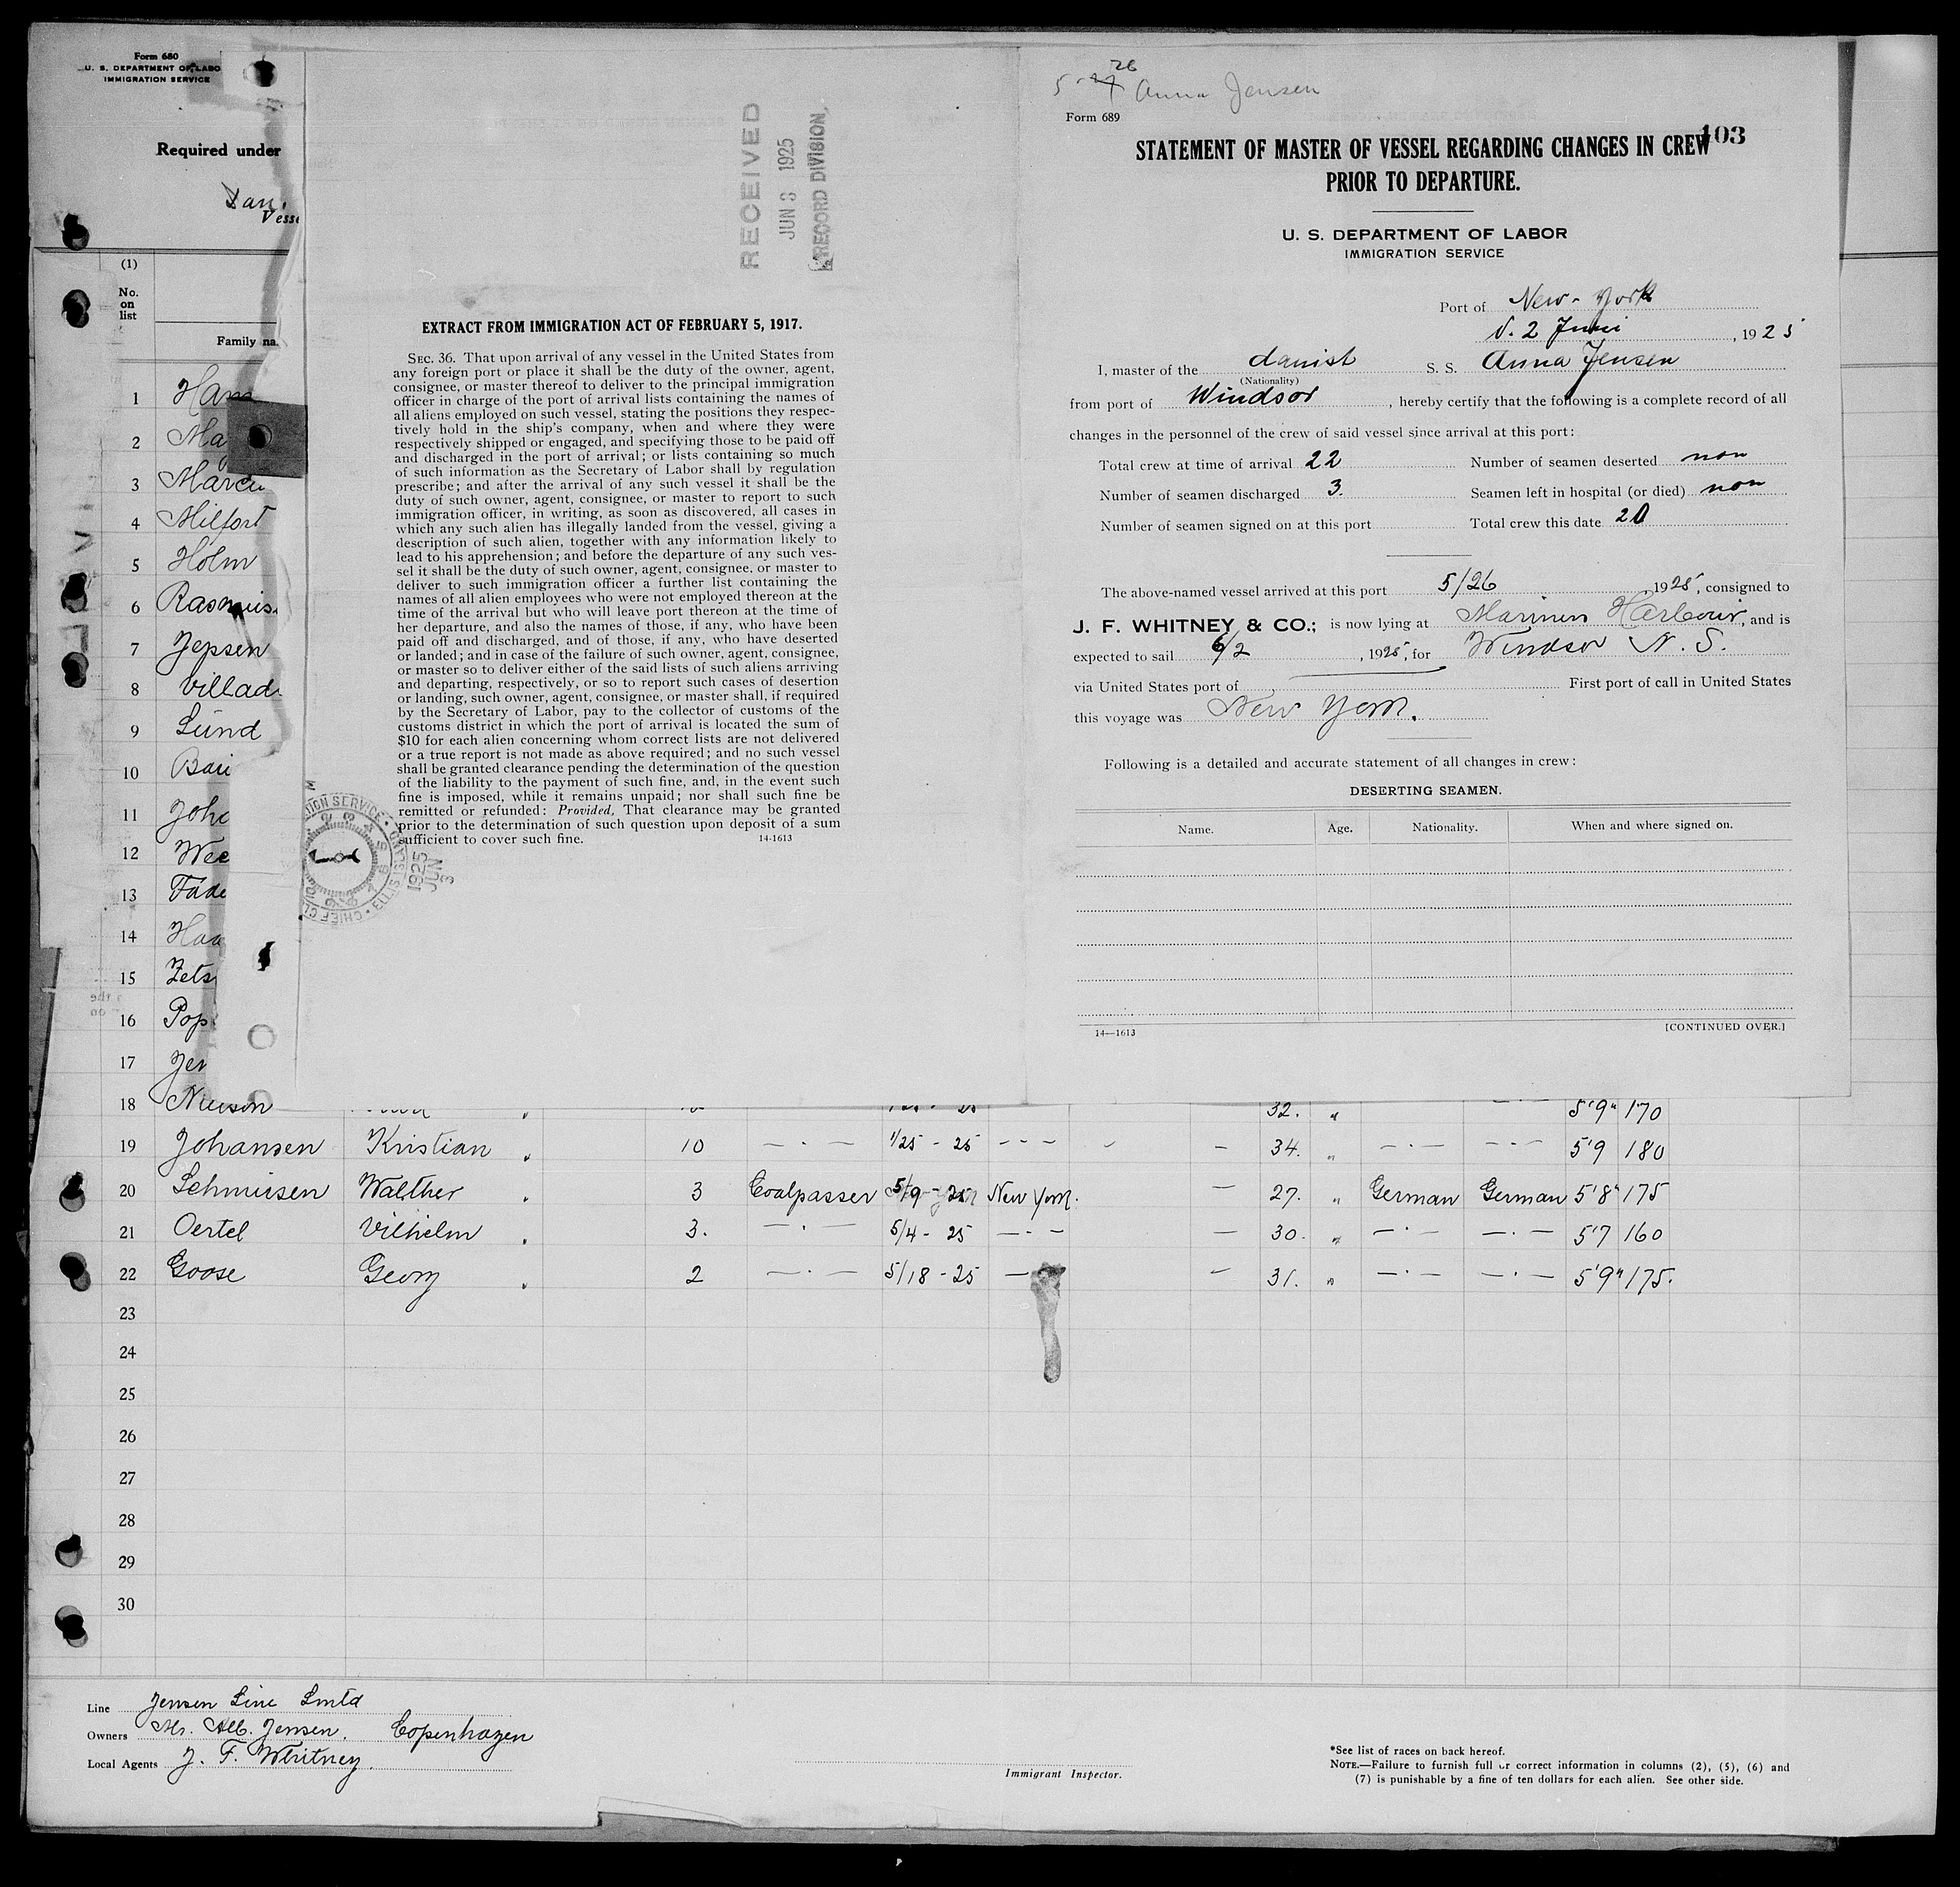 Form 680
U. S. DEPARTMENT OF LABO
IMMIGRATION SERVICE
Required under
Dan.
Vesse
(1)
No.
on
list
Family na
1 Hans
2 Ma
3 Marcu
4 Milfort
5 Holm
6 Rasmus
7 Jepsen
8 Villad
9 Lund
10 Bau
11 Joh
12 Wee
13 Fade
14 Haa
15 Zets
16 Pop
17 Jen
RECEIVED
JUN 3 1925
RECORD DIVISION
EXTRACT FROM IMMIGRATION ACT OF FEBRUARY 5, 1917.
SEC. 36. That upon arrival of any vessel in the United States from
any foreign port or place it shall be the duty of the owner, agent,
consignee, or master thereof to deliver to the principal immigration
officer in charge of the port of arrival lists containing the names of
all aliens employed on such vessel, stating the positions they respec-
tively hold in the ship's company, when and where they were
respectively shipped or engaged, and specifying those to be paid off
and discharged in the port of arrival; or lists containing so much
of such information as the Secretary of Labor shall by regulation
prescribe; and after the arrival of any such vessel it shall be the
duty of such owner, agent, consignee, or master to report to such
immigration officer, in writing, as soon as discovered, all cases in
which any such alien has illegally landed from the vessel, giving a
description of such alien, together with any information likely to
lead to his apprehension; and before the departure of any such ves-
sel it shall be the duty of such owner, agent, consignee, or master to
deliver to such immigration officer a further list containing the
names of all alien employees who were not employed thereon at the
time of the arrival but who will leave port thereon at the time of
her departure, and also the names of those, if any, who have been
paid off and discharged, and of those, if any, who have deserted
or landed; and in case of the failure of such owner, agent, consignee,
or master so to deliver either of the said lists of such aliens arriving
and departing, respectively, or so to report such cases of desertion
or landing, such owner, agent, consignee, or master shall, if required
by the Secretary of Labor, pay to the collector of customs of the
customs district in which the port of arrival is located the sum of
$10 for each alien concerning whom correct lists are not delivered
or a true report is not made as above required; and no such vessel
shall be granted clearance pending the determination of the question
of the liability to the payment of such fine, and, in the event such
fine is imposed, while it remains unpaid; nor shall such fine be
remitted or refunded: Provided, That clearance may be granted
prior to the determination of such question upon deposit of a sum
sufficient to cover such fine. 14-1613
ION SERVICE • ELLIS ISLAND • CHIEF CL
1925 JUN 3
5- 26 Anna Jensen
Form 689
103
STATEMENT OF MASTER OF VESSEL REGARDING CHANGES IN CREW
PRIOR TO DEPARTURE.
U. S. DEPARTMENT OF LABOR
IMMIGRATION SERVICE
Port of New-York
d. 2 Juni, 1925
I, master of the danish S. S. Anna Jensen
(Nationality)
from port of Windsor, hereby certify that the following is a complete record of all
changes in the personnel of the crew of said vessel since arrival at this port:
Total crew at time of arrival 22 Number of seamen deserted non
Number of seamen discharged 3. Seamen left in hospital (or died) non
Number of seamen signed on at this port Total crew this date 20
The above-named vessel arrived at this port 5/26 1925, consigned to
J. F. WHITNEY & CO.; is now lying at Mariners Harbour, and is
expected to sail 6/2, 1925, for Windsor N. S.
via United States port of First port of call in United States
this voyage was New York.
Following is a detailed and accurate statement of all changes in crew:
DESERTING SEAMEN.
Name. Age. Nationality. When and where signed on.
14—1613 [CONTINUED OVER.]
18 32. " 5'9" 170
19 Johansen Kristian " 10 — . — 1/25 - 25 - - - — 34. " — . — — . — 5'9 180
20 Schmiesen Walther " 3 Coalpasser 5/9 - 25 New York. — 27. " German German 5'8" 175
21 Oertel Vilhelm " 3. — . — 5/4 - 25 — . — — 30. " — . — — . — 5'7 160
22 Goose Georg " 2 — . — 5/18 - 25 — — 31. " — . — — . — 5'9" 175.
23
24
25
26
27
28
29
30
Line Jensen Line Lmtd
Owners Mr. Alb. Jensen. Copenhagen
Local Agents J. F. Whitney.
Immigrant Inspector.
*See list of races on back hereof.
NOTE.—Failure to furnish full or correct information in columns (2), (5), (6) and
(7) is punishable by a fine of ten dollars for each alien. See other side.